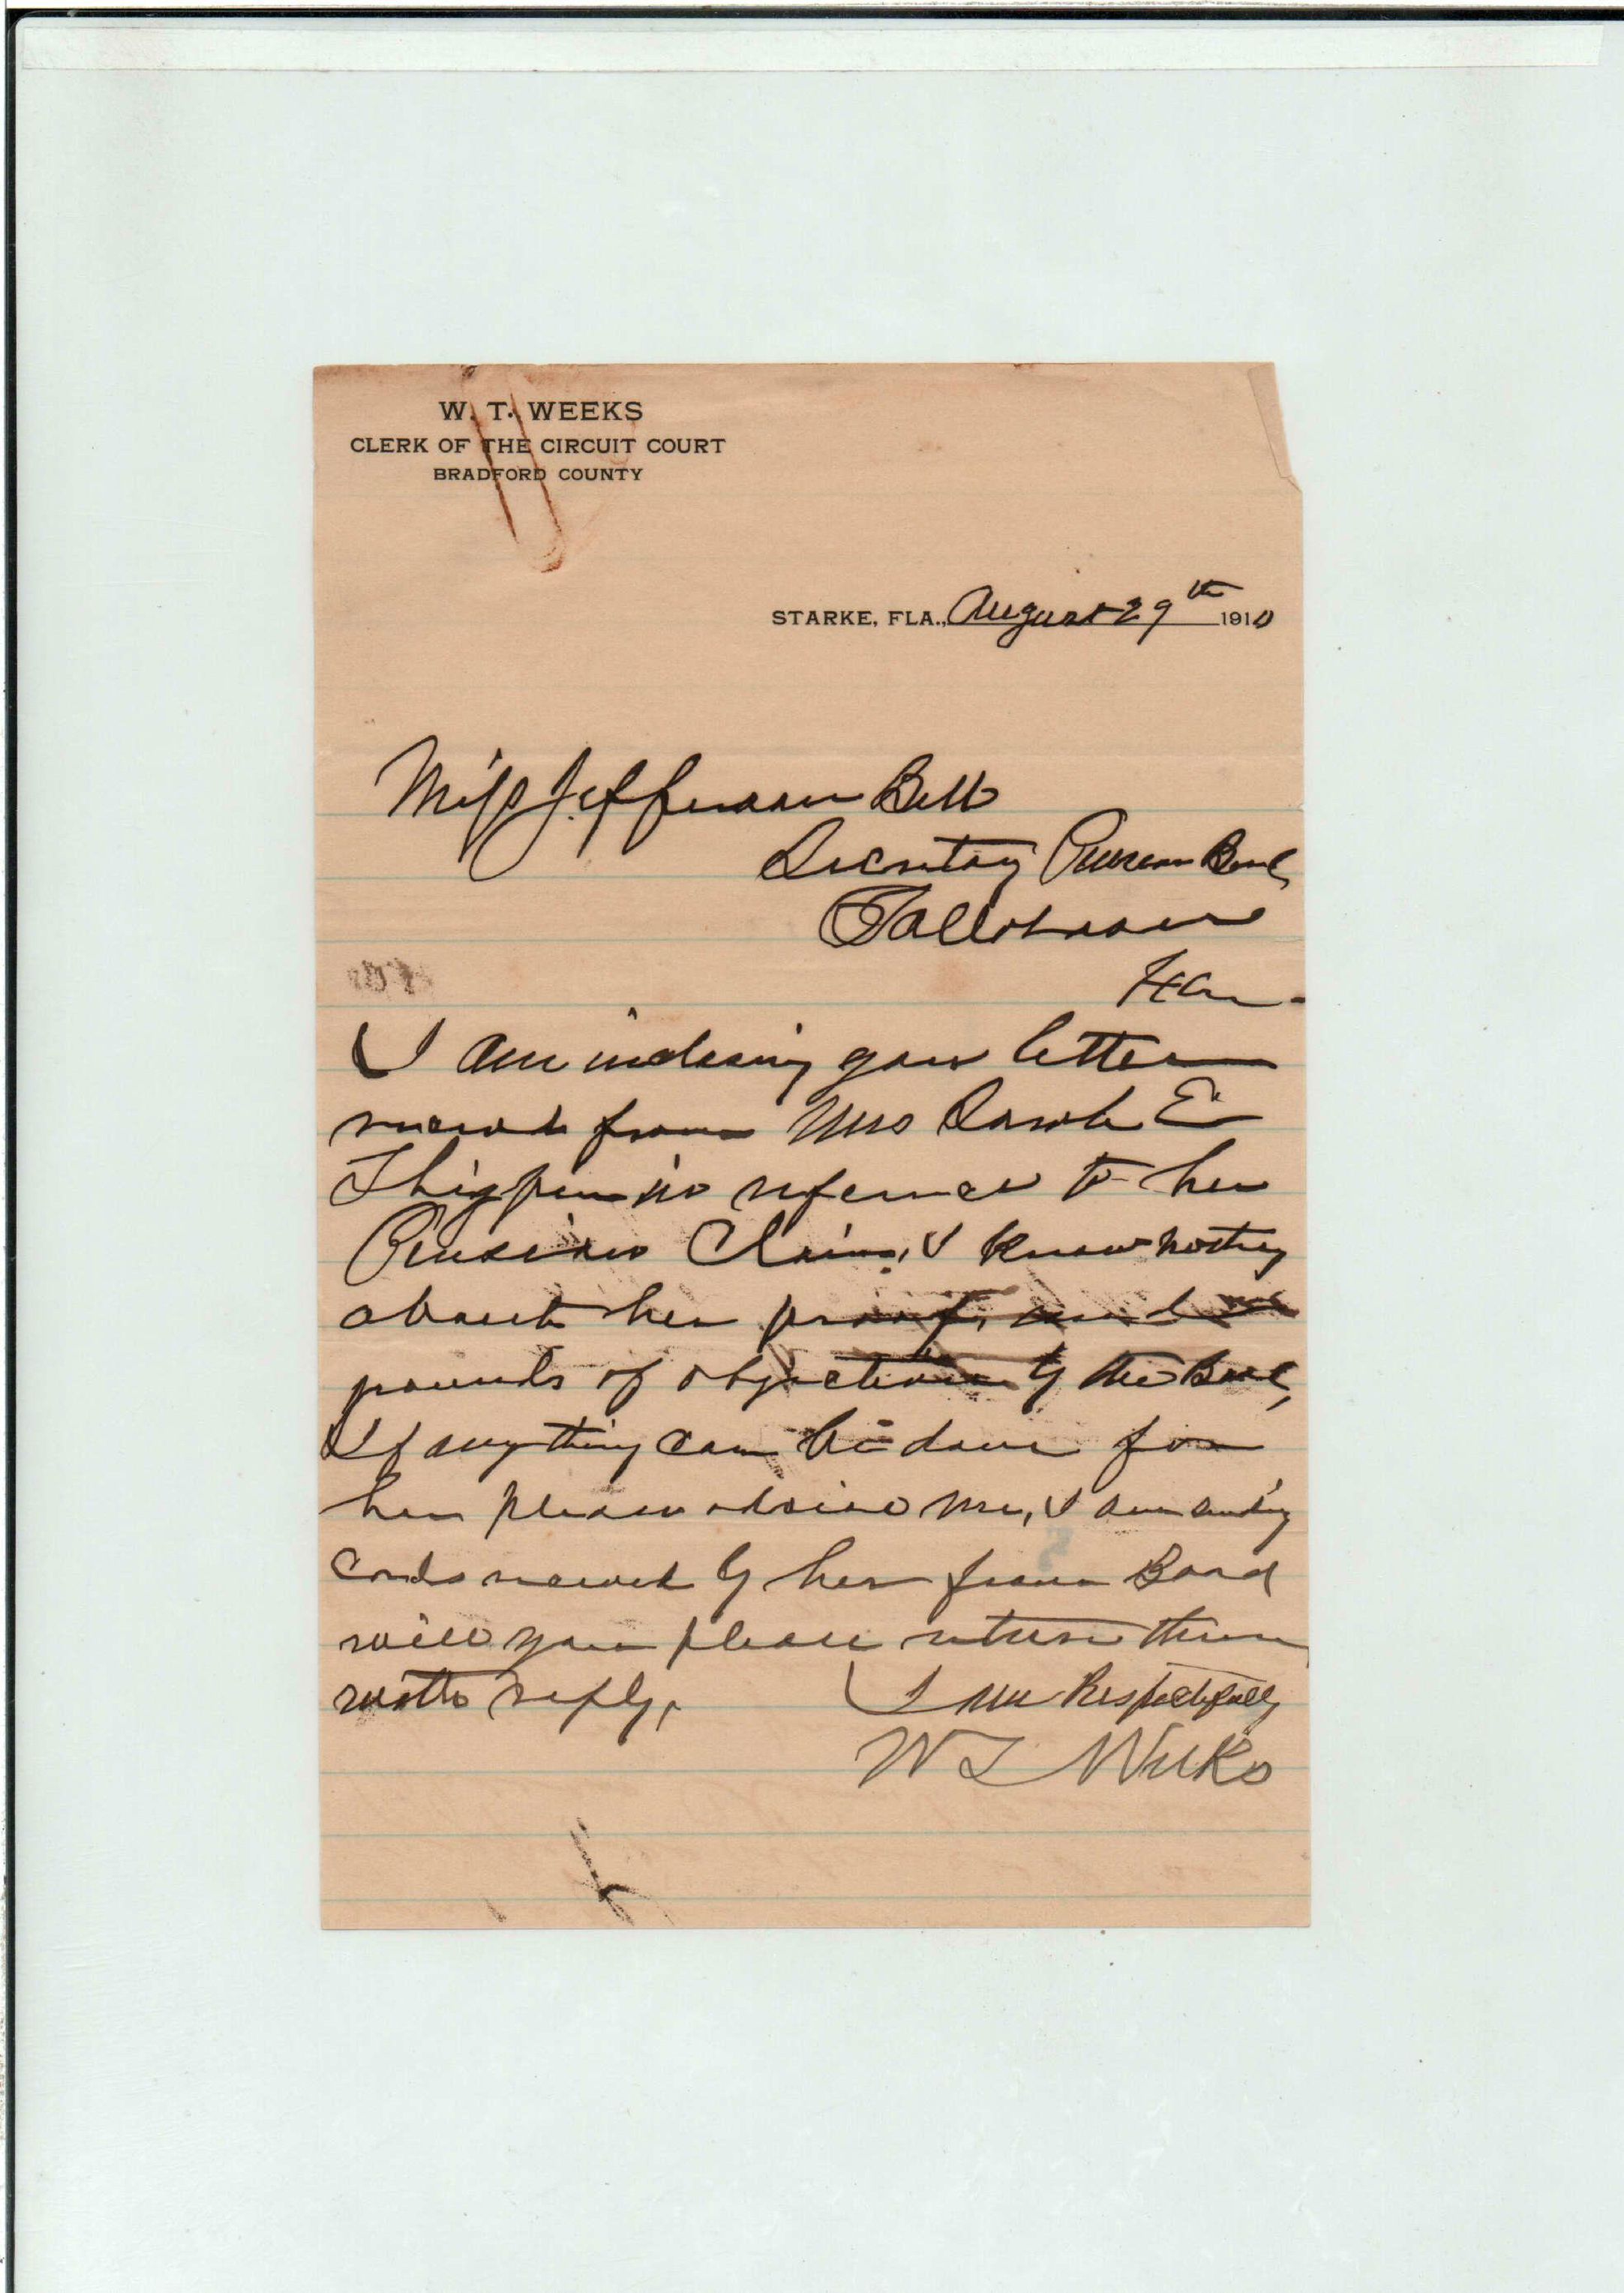 W. T. WEEKS
CLERK OF THE CIRCUIT COURT
BRADFORD COUNTY
STARKE, FLA., August 29th 1910
Miss Jefferson Bell
Secretary Pension Board
Tallahassee
Fla
I am inclosing you letter
received from Mrs Sarah E
Thigpen in reference to her
Pension Claim, I know nothing
about her proof, and
grounds of objection by the Board,
If anything can be done for
her please advise me, I am sending
Cards received by her from Board
will you please return them
with reply,
I am Respectfully
W T Weeks